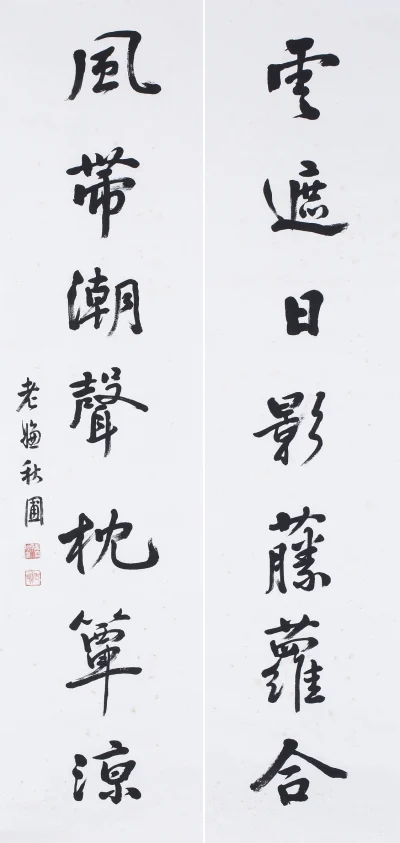 雲遮日影藤蘿合
風帶潮聲枕簟涼
老㛤秋圃